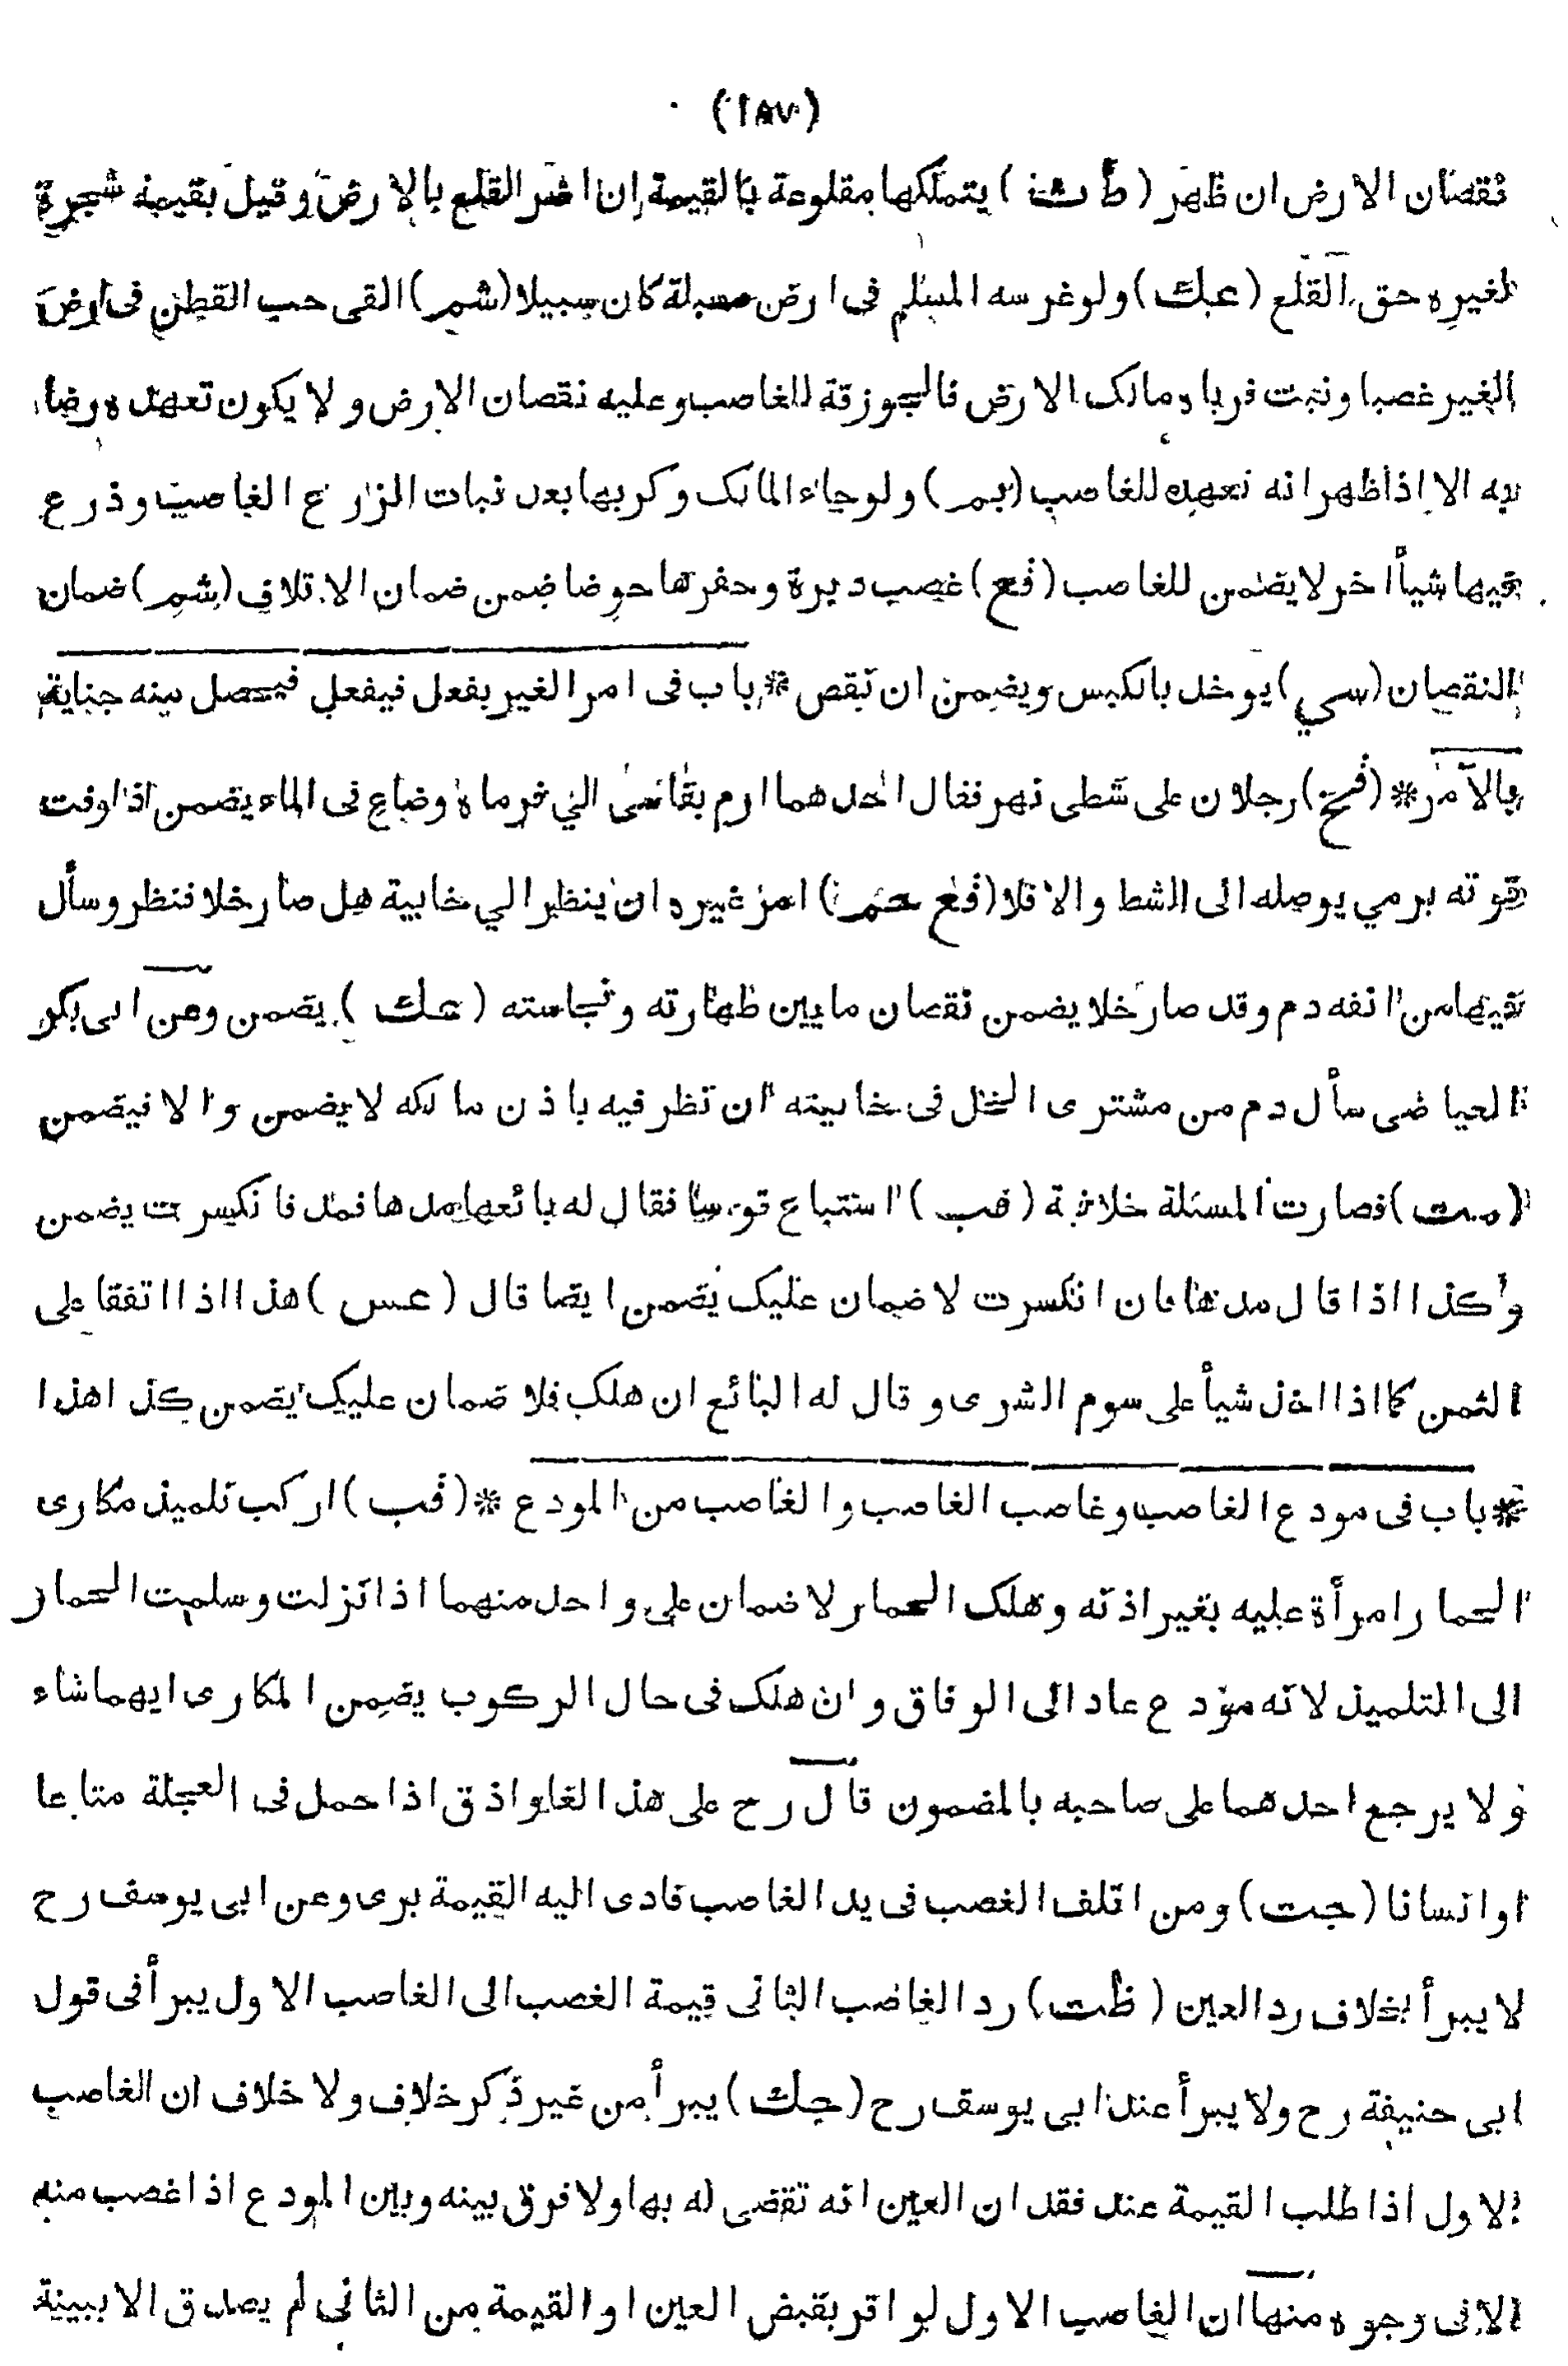 (١٨٧)
نقصان الارض ان ظهر (ط شذ) يتملكها مقلوعة بالقيمة ان اضر القلع بالارض وقيل بقيمة شجرة
لغيره حق القلع (عبك) ولو غرسه المسلم فى ارض مسبلة كان سبيلا (شم) القى حب القطن فى ارض
الغير غصبا ونبت فرباه مالك الارض فالجوزقة للغاصب وعليه نقصان الارض ولا يكون تعهده رضا
به الا اذا ظهر انه تعهده للغاصب (بم) ولو جاء المالك وكربها بعد نبات الزارع الغاصب وذرع
فيها شيأ اخر لا يضمن للغاصب (فع) غصب دبرة وحفرها حوضا ضمن ضمان الاتلاف (شم) ضمان
النقصان (سي) يوخذ بالكبس ويضمن ان نقص * باب فى امر الغير بفعل فيفعل فيحصل منه جناية
بالآمر * (فخ) رجلان على شطى نهر فقال احدهما ارم بقاسى الي فرماه وضاع فى الماء يضمن اذا وفت
قوته برمي يوصله الى الشط والا فلا (فع حم) امر غيره ان ينظر الي خابية هل صار خلا فنظر وسأل
فيها من انفه دم وقد صار خلا يضمن نقصان ما بين طهارته ونجاسته (عك) يضمن وعن ابى بكر
العياضى سأل دم من مشترى الخل فى خابيته ان نظر فيه باذن مالكه لا يضمن والا فيضمن
(مت) فصارت المسئلة خلافية (قب) استباع قوسا فقال له بائعها مدها فمد فانكسرت يضمن
وكذا اذا قال مدها فان انكسرت لا ضمان عليك يضمن ايضا قال (عس) هذا اذا اتفقا على
الثمن كما اذا اخذ شيأ على سوم الشرى وقال له البائع ان هلك فلا ضمان عليك يضمن كذا هذا
* باب فى مودع الغاصب وغاصب الغاصب والغاصب من المودع * (قب) اركب تلميذ مكارى
الحمار امرأة عليه بغير اذنه وهلك الحمار لا ضمان على واحد منهما اذا نزلت وسلمت الحمار
الى التلميذ لانه مودع عاد الى الوفاق وان هلك فى حال الركوب يضمن المكارى ايهما شاء
ولا يرجع احدهما على صاحبه بالمضمون قال رح على هذا الغاواذق اذا حمل فى العجلة متاعا
او انسانا (جت) ومن اتلف الغصب فى يد الغاصب فادى اليه القيمة برى وعن ابى يوسف رح
لا يبرأ بخلاف رد العين (ظت) رد الغاصب الثانى قيمة الغصب الى الغاصب الاول يبرأ فى قول
ابى حنيفة رح ولا يبرأ عند ابى يوسف رح (جك) يبرأ من غير ذكر خلاف ولا خلاف ان الغاصب
الاول اذا طلب القيمة عند فقدان العين انه تقضى له بها ولا فرق بينه وبين المودع اذا غصب منه
الا فى وجوه منها ان الغاصب الاول لو اقر بقبض العين او القيمة من الثانى لم يصدق الا ببينة